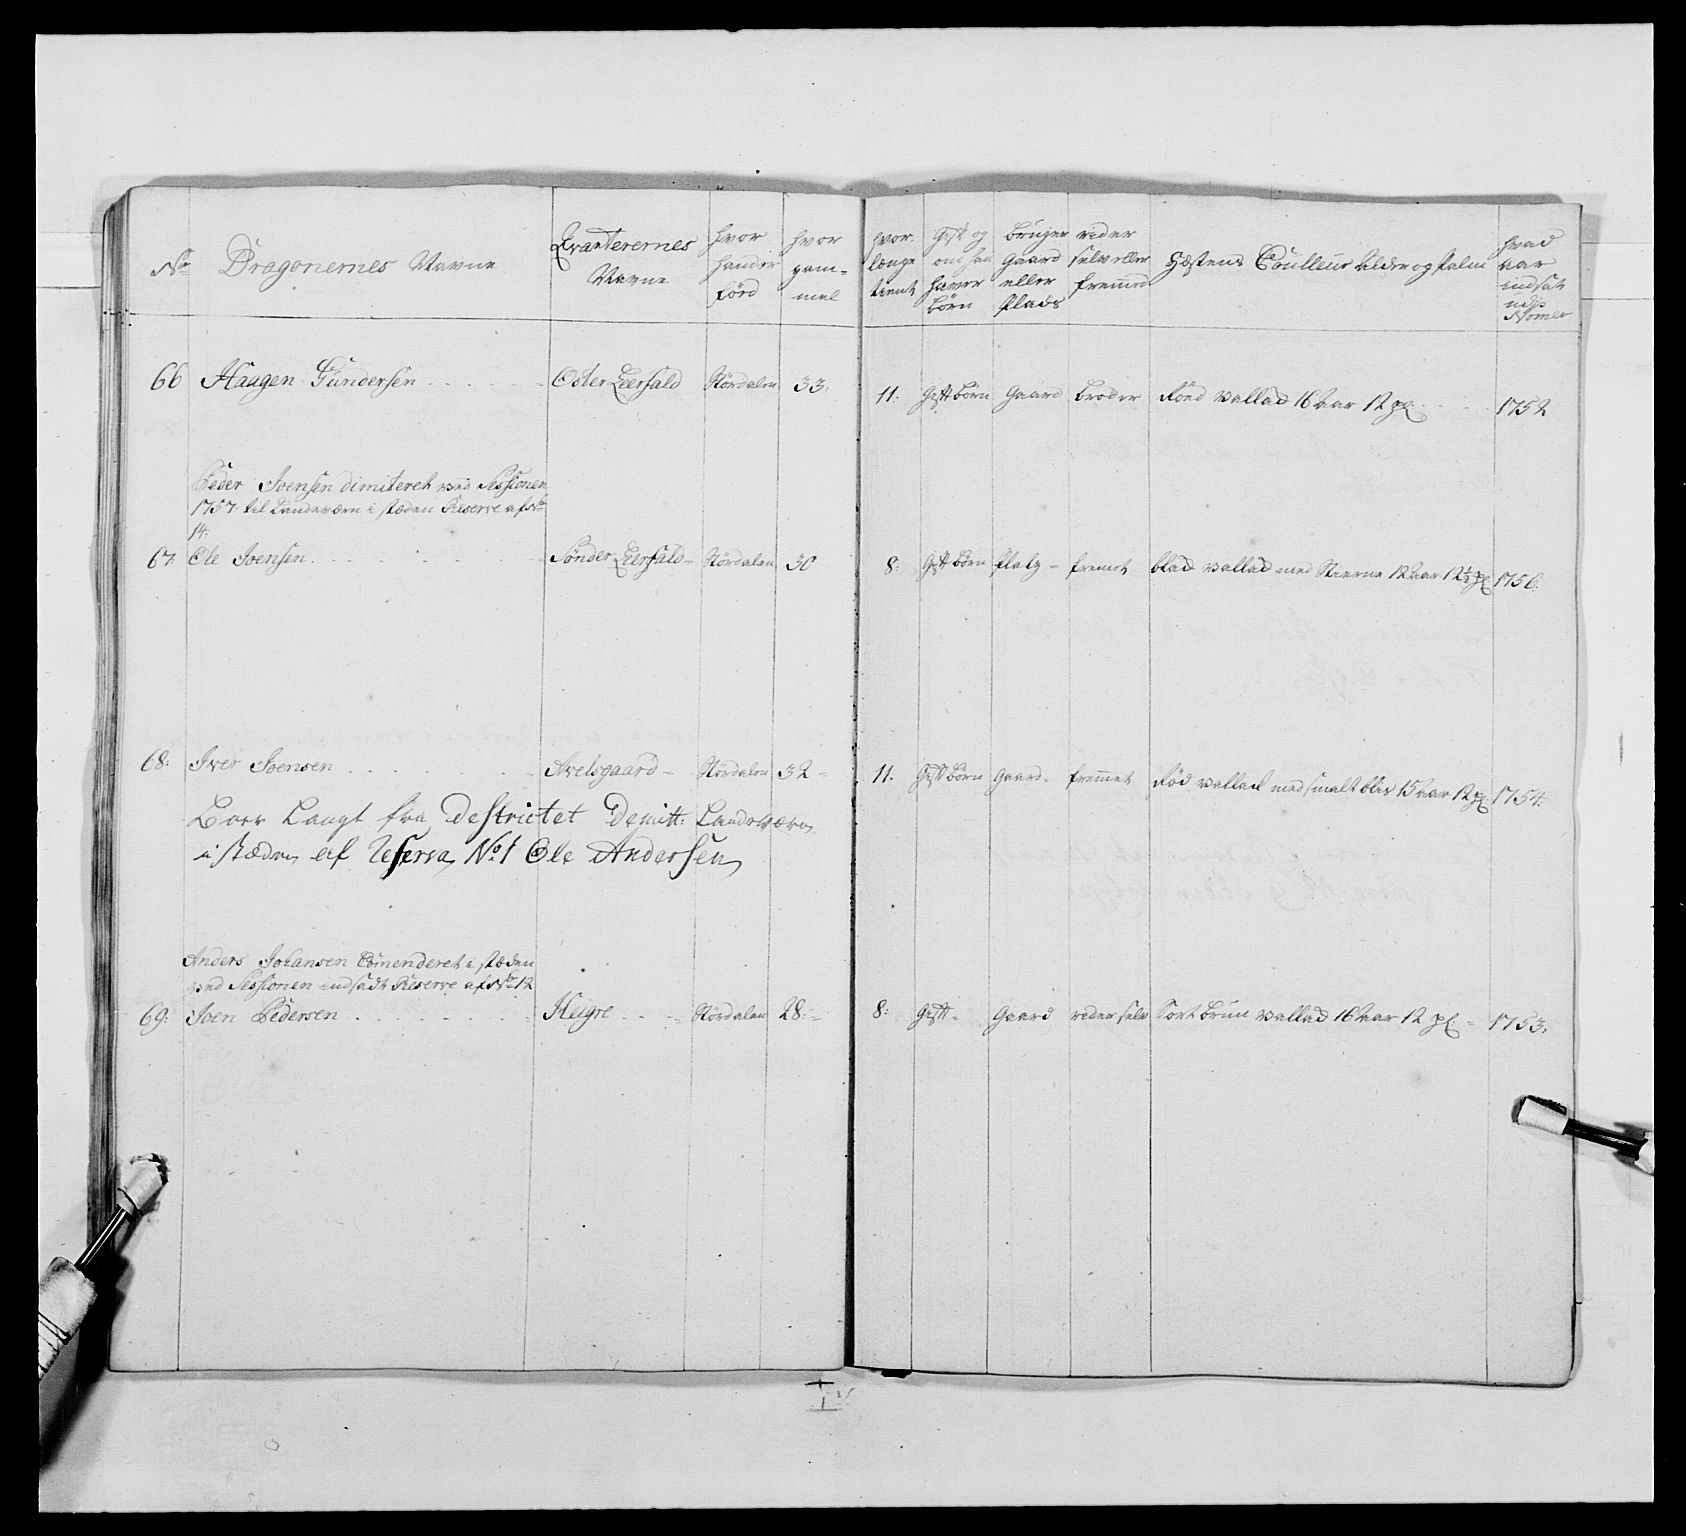 No
Dragonernes Navne
Qvarterernes
Navne
hvor
hand er
förd
hvor
gam-
mel
hvor
længe
tient
Gift og
om han
haver
börn
bruger
Gaard
eller
Plads
rider
selv eller
fremmed
Hæstens Coulleur alder og Palm
hvad
aar
indsat
udj
Nomer
66 Haagen Gundersen Öster Leersald Stördalen 33: 11: Gift börn Gaard broder Röed Vallad 16 aar 12 pl: 1752
Peder Joensen dimiteret ved Sessionen
1757 til Landeværn i stæden Reserve af No
14:
67: Ole Joensen Sönder Leersald Stördalen 30 8: Gift börn Platz fremet blad vallad med Stierne 12 aar 12½ pl 1756:
68: Iver Joensen Avelsgaard Stördalen 32 11. Gift börn Gaard fremmet Röd vallack med smalt blis 15 aar 12 pl 1754:
Boer Langt fra Destrictet Demitt: Landeværn
i stæden af Reserva No 1 Ole Andersen
Anders Johansen Comenderet i stæden
ved Sessionen indsadt Reserve af No 12
69: Joen Pedersen Heigre Stördalen 28: 8: Gift Gaard rider selv Sort brun vallad 16 aar 12 pl: 1753: